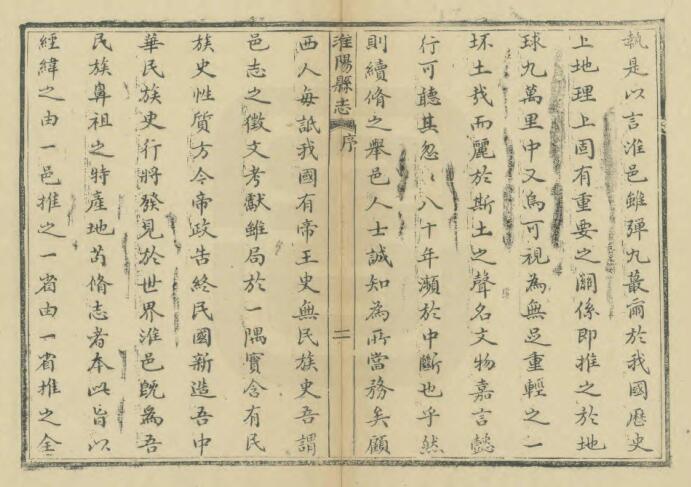 執是以言淮邑雖彈九蕞爾於我國歷史
上地理上固有重要之關係即推之於地
球九萬里中又烏可視為無足重輕之一
坏土哉而麗於斯土之聲名文物嘉言懿
行可聽其忽〻八十年瀕於中斷也乎然
則續脩之舉邑人士誠知為所當務矣顧
淮陽縣志 序 二
西人每詆我國有帝王史無民族史吾謂
邑志之徵文考獻雖局於一隅實含有民
族史性質方今帝政告終民國新造吾中
華民族史行將發見於世界淮邑既為吾
民族鼻祖之特產地茍脩志者本此旨以
經緯之由一邑推之一省由一省推之全